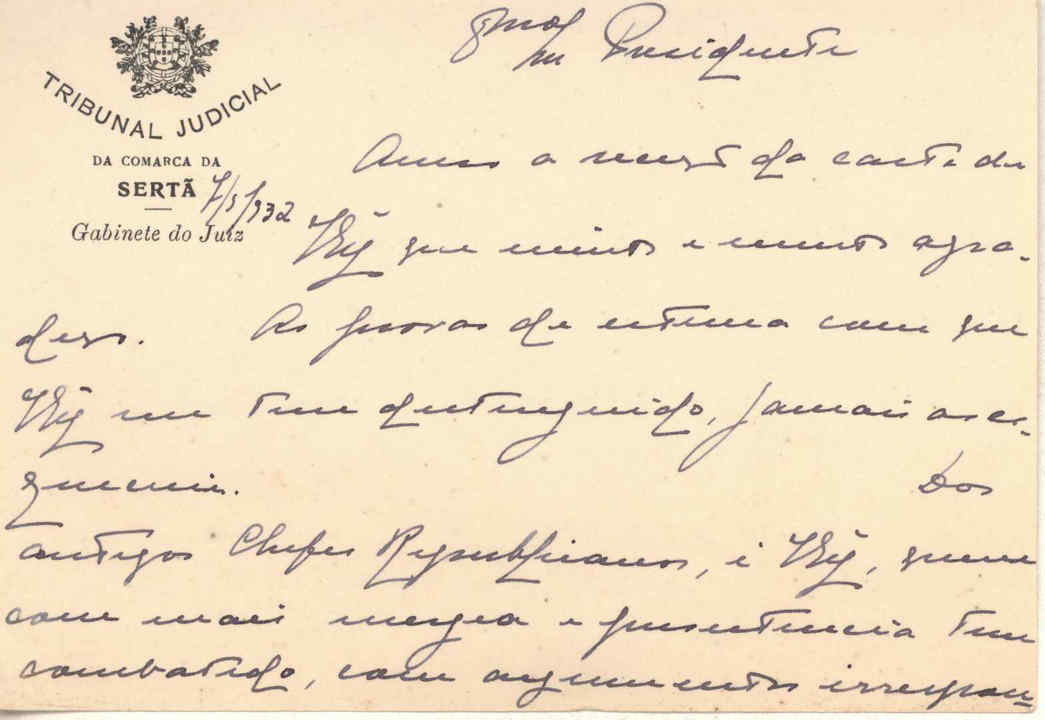 Exmo
Snr Presidente
TRIBUNAL JUDICIAL
DA COMARCA DA
SERTÃ
7/5/932
Gabinete do Juiz
Acuso a da carta de
V. Exª que muito e muito agra-
deço. As provas de estima com que
V. Exª me tem distinguido, jamais as es-
quecerei. Dos
antigos Chefes Republicanos, é V. Exª, quem
com mais energia e persistencia tem
combatido, com argumentos irrespon-